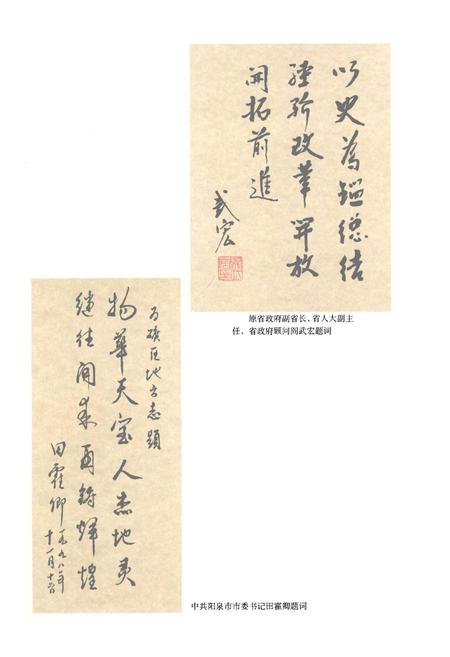 以史為鑑總結
經驗改革開放
開拓前進
武宏
原省政府副省长、省人大副主
任、省政府顾问阎武宏题词
为矿区地方志题
物華天宝人杰地灵
继往開来再铸辉煌
田霍卿
十一月十
中共阳泉市市委书记田霍卿题词